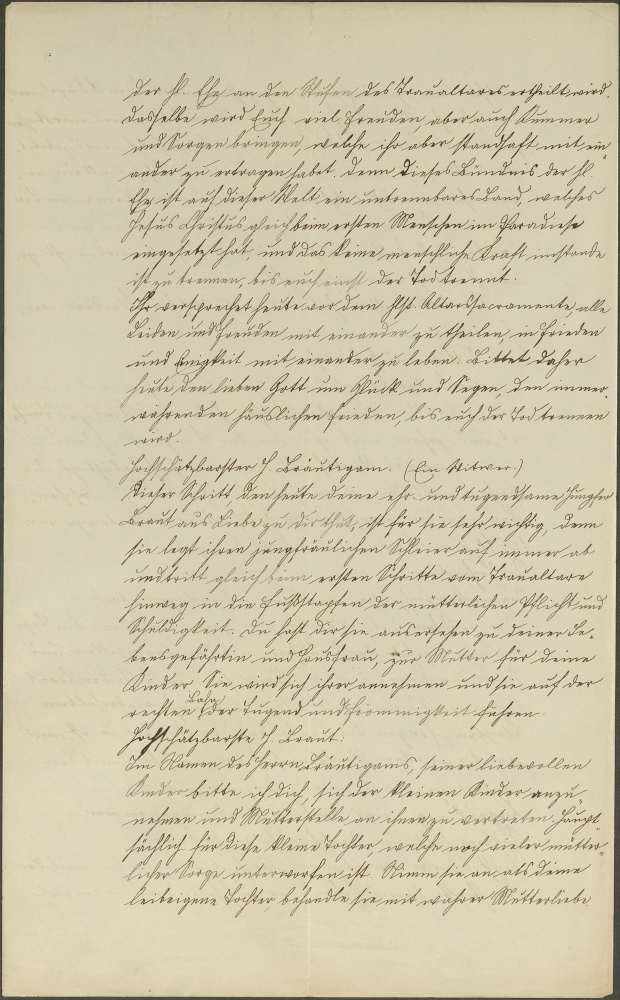 der hl. Ehe an den Stufen des Traualtares ertheilt wird.
Dasselbe wird Euch viel Freuden, aber auch Kummer
und Sorgen bringen, welche ihr aber standhaft mit ein-
ander zu ertragen habet, denn dieses Bündnis der hl.
Ehe ist auf dieser Welt ein untrennbares Band, welches
Jesus Christus gleich beim ersten Menschen im Paradiese
eingesetzt hat, und das keine menschliche Kraft imstande
ist zu trennen, bis euch einst der Tod trennt.
Ihr versprechet heute vor dem hlst. Altarssacramente, alle
Leiden und Freuden mit einander zu theilen, in Frieden
und Einigkeit mit einander zu leben. Bittet daher
heute den lieben Gott um Glück und Segen, den immer-
währenden häuslichen Frieden, bis euch der Tod trennen
wird.
Hochschätzbarster H. Bräutigam. (Ein Witwer.)
Dieser Schritt den heute deine ehr- und tugendsame Jungfer
Braut aus Liebe zu dir thut, ist für sie sehr wichtig, denn
sie legt ihren jungfräulichen Schleier auf immer ab
und tritt gleich beim ersten Schritte vom Traualtare
hinweg in die Fußstapfen der mütterlichen Pflicht und
Schuldigkeit. Du hast dir sie auserse​hen zu deiner Le-
bensgefährtin und Hausfrau, zur Mutter für deine
Kinder. Sie wird sich ihrer annehmen und sie auf der
rechten Bahn der Tugend und Frömmigkeit führen.
Hochschätzbarste J. Braut.
Im Namen des Herrn Bräutigams, seiner liebevollen
Kinder bitte ich dich, sich der kleinen Kinder anzu-
nehmen und Mutterstelle an ihnen zu vertreten. Haupt-
sächlich für diese kleine Tochter, welche noch vieler mütter-
licher Sorge unterworfen ist. Nimm sie an als deine
leibeigene Tochter, behandle sie mit wahrer Mutterliebe